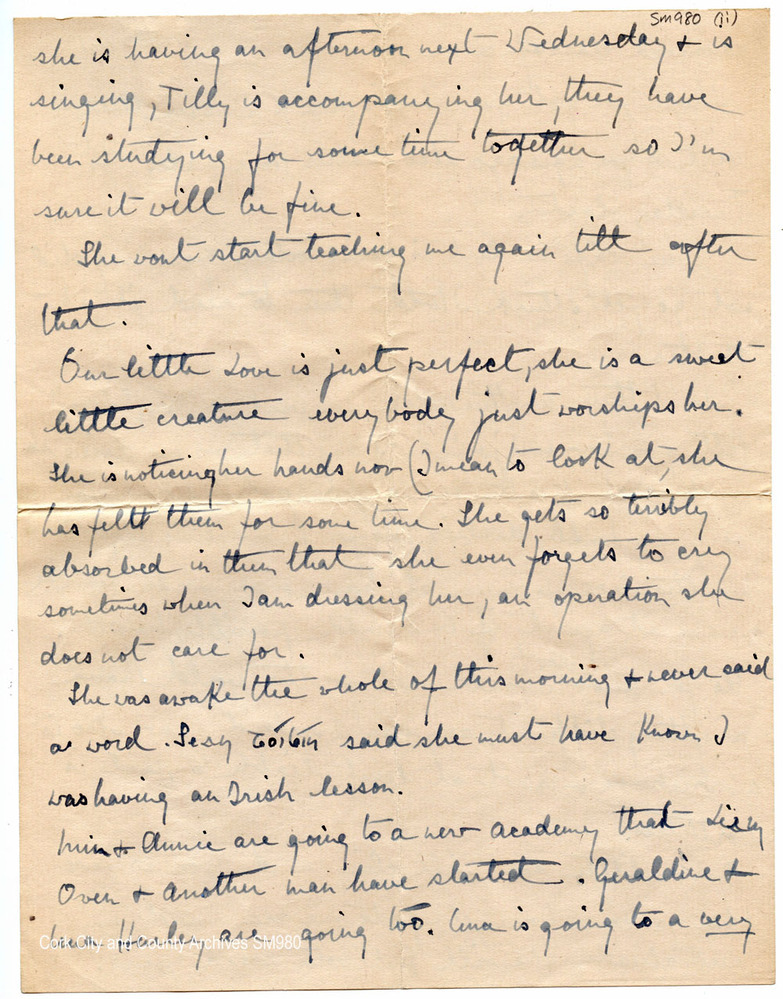 SM980 (ii)
she is having an afternoon next Wednesday & is
singing, Tilly is accompanying her, they have
been studying for some time together so I'm
sure it will be fine.
She wont start teaching me again till after
that.
Our little Love is just perfect, she is a sweet
little creature everybody just worships her.
She is noticing her hands now (I mean to look at, she
has felt them for some time. She gets so terribly
absorbed in them that she even forgets to cry
sometimes when I am dressing her, an operation she
does not care for.
She was awake the whole of this morning & never said
a word. said she must have known I
was having an Irish lesson.
& Annie are going to a new academy that
Owen & another man have started. Geraldine &
are going too. is going to a very
Cork City and County Archives SM980